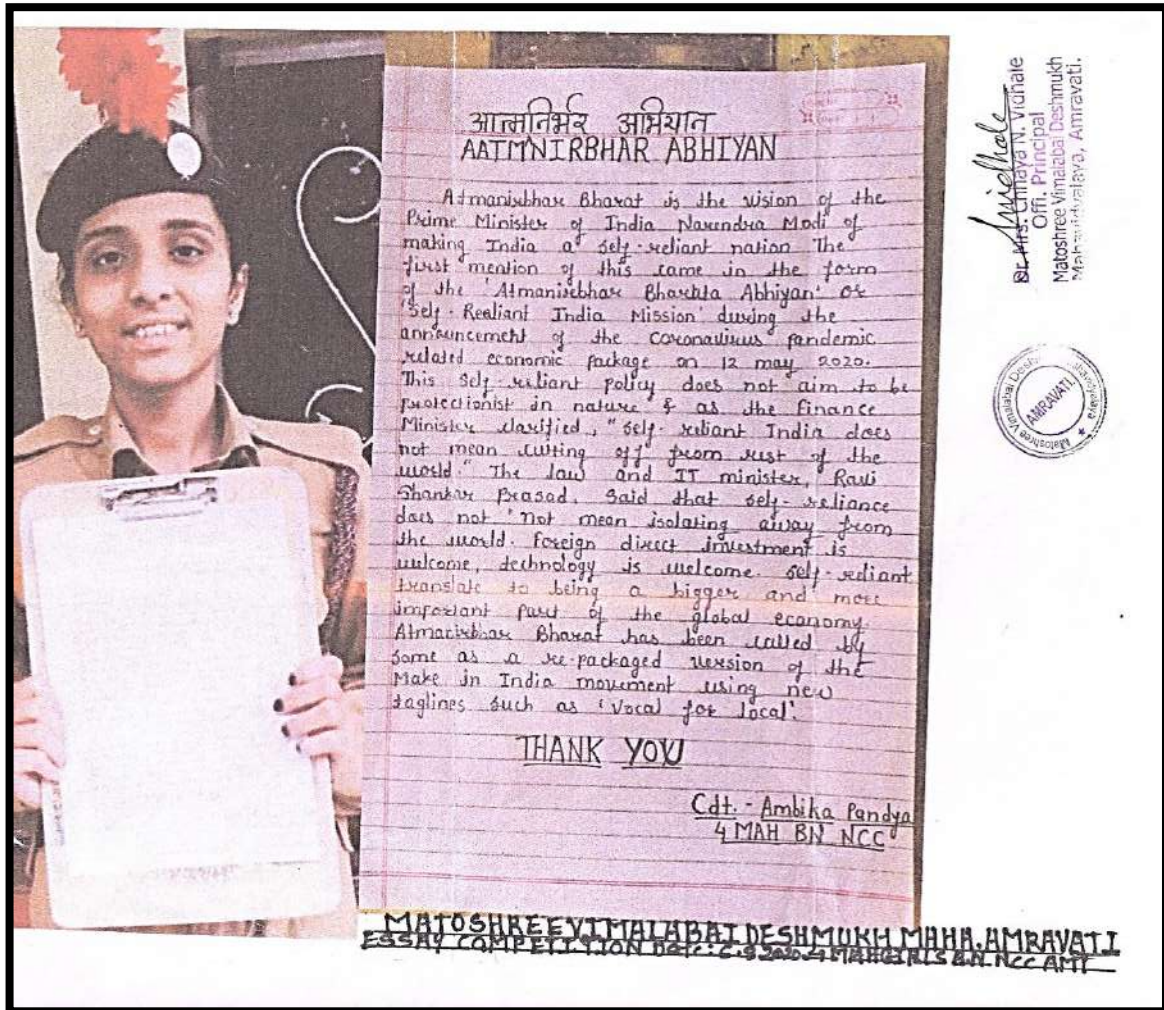 आत्मनिर्भर अभियान
AATM'NIRBHAR ABHIYAN
Atmanirbhar Bharat is the vision of the
Prime Minister of India Narendra Modi of
making India a self-reliant nation The
first mention of this came in the form
of the 'Atmanirbhar Bharata Abhiyan' or
'Self-Realiant India Mission' during the
announcement of the coronavirus pandemic
related economic package on 12 may 2020.
This self-reliant policy does not aim to be
protectionist in nature & as the Finance
Minister clarified, "self-reliant India does
not mean cutting off" from rest of the
world." The law and IT minister, Ravi
Shankar Prasad, said that self-reliance
does not "not mean isolating away from
the world. Foreign direct investment is
welcome, technology is welcome. self-rediant
translate to being a bigger and more
important part of the global economy.
Atmanirbhar Bharat has been called by
some as a re-packaged version of the
Make in India movement using new
taglines such as 'Vocal for local'.
THANK YOU
Cdt. - Ambika Pandya
4 MAH BN NCC
MATOSHREE VIMALABAI DESHMUKH MAHA. AMRAVATI
ESSAY COMPETITION Date: 6.9.2020. 4 MAH GIRLS BN. NCC AMT
Dr. Mrs. Chhaya N. Vidhale
Offi. Principal
Matoshree Vimalabai Deshmukh
Mahavidyalaya, Amravati.
Matoshree Vimalabai
AMRAVATI.